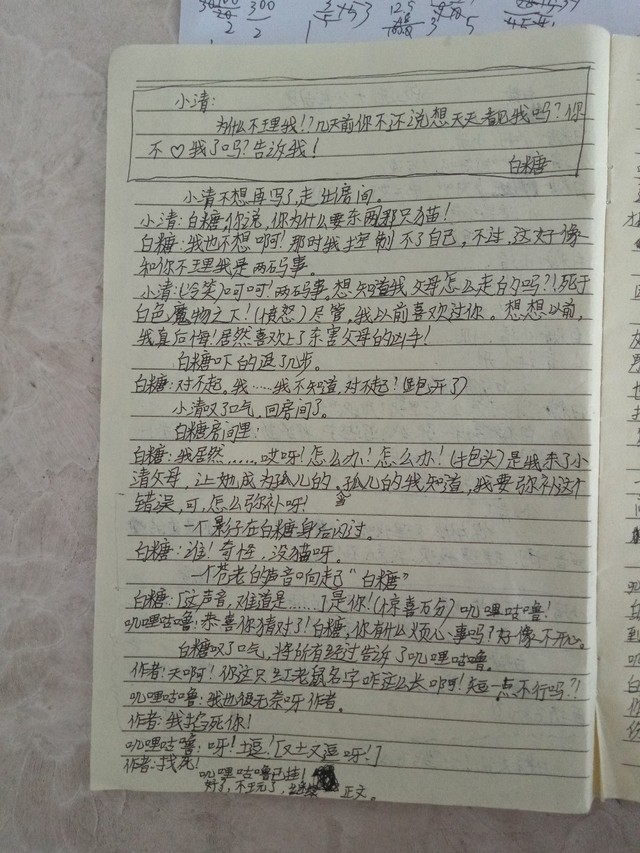 300
2
2
12.5
3
5
小清:
为什么不理我!?几天前你不还说想天天看见我吗?你
不♡我了吗?告诉我!
白糖
小清不想再写了,走出房间。
小清:白糖,你说,你为什么要杀两那只猫!
白糖:我也不想啊!那时我控制不了自己,不过,这好像
和你不理我是两码事。
小清:(冷笑)呵呵!两码事,想知道我父母怎么走的吗?!死于
白色魔物之下!(愤怒)尽管,我以前喜欢过你。想想以前,
我真后悔!居然喜欢上了杀害父母的凶手!
白糖吓的退了几步。
白糖:对不起,我……我不知道,对不起?(跑开了)
小清叹了口气,回房间了。
白糖房间里:
白糖:我居然……,哎呀!怎么办!怎么办!(抱头)是我杀了小
清父母,让她成为孤儿的,孤儿的我知道,我要弥补这个
错误,可,怎么弥补呀!
一个影子在白糖身后闪过。
白糖:谁!奇怪,没猫呀。
一个苍老的声音响起了“白糖”
白糖:[这声音,难道是……]是你!(惊喜万分)叽哩咕噜!
叽哩咕噜:恭喜你猜对了!白糖,你有什么烦心事吗?好像不开心。
白糖叹了口气,将所有经过告诉了叽哩咕噜。
作者:天啊!你这只红老鼠名字咋这么长啊!短一点不行吗?!
叽哩咕噜:我也很无奈呀作者。
作者:我掐死你!
叽哩咕噜:呀!土逗![又土又逗呀!]
作者:找死!
叽哩咕噜已挂!
好了,不玩了,继续正文。